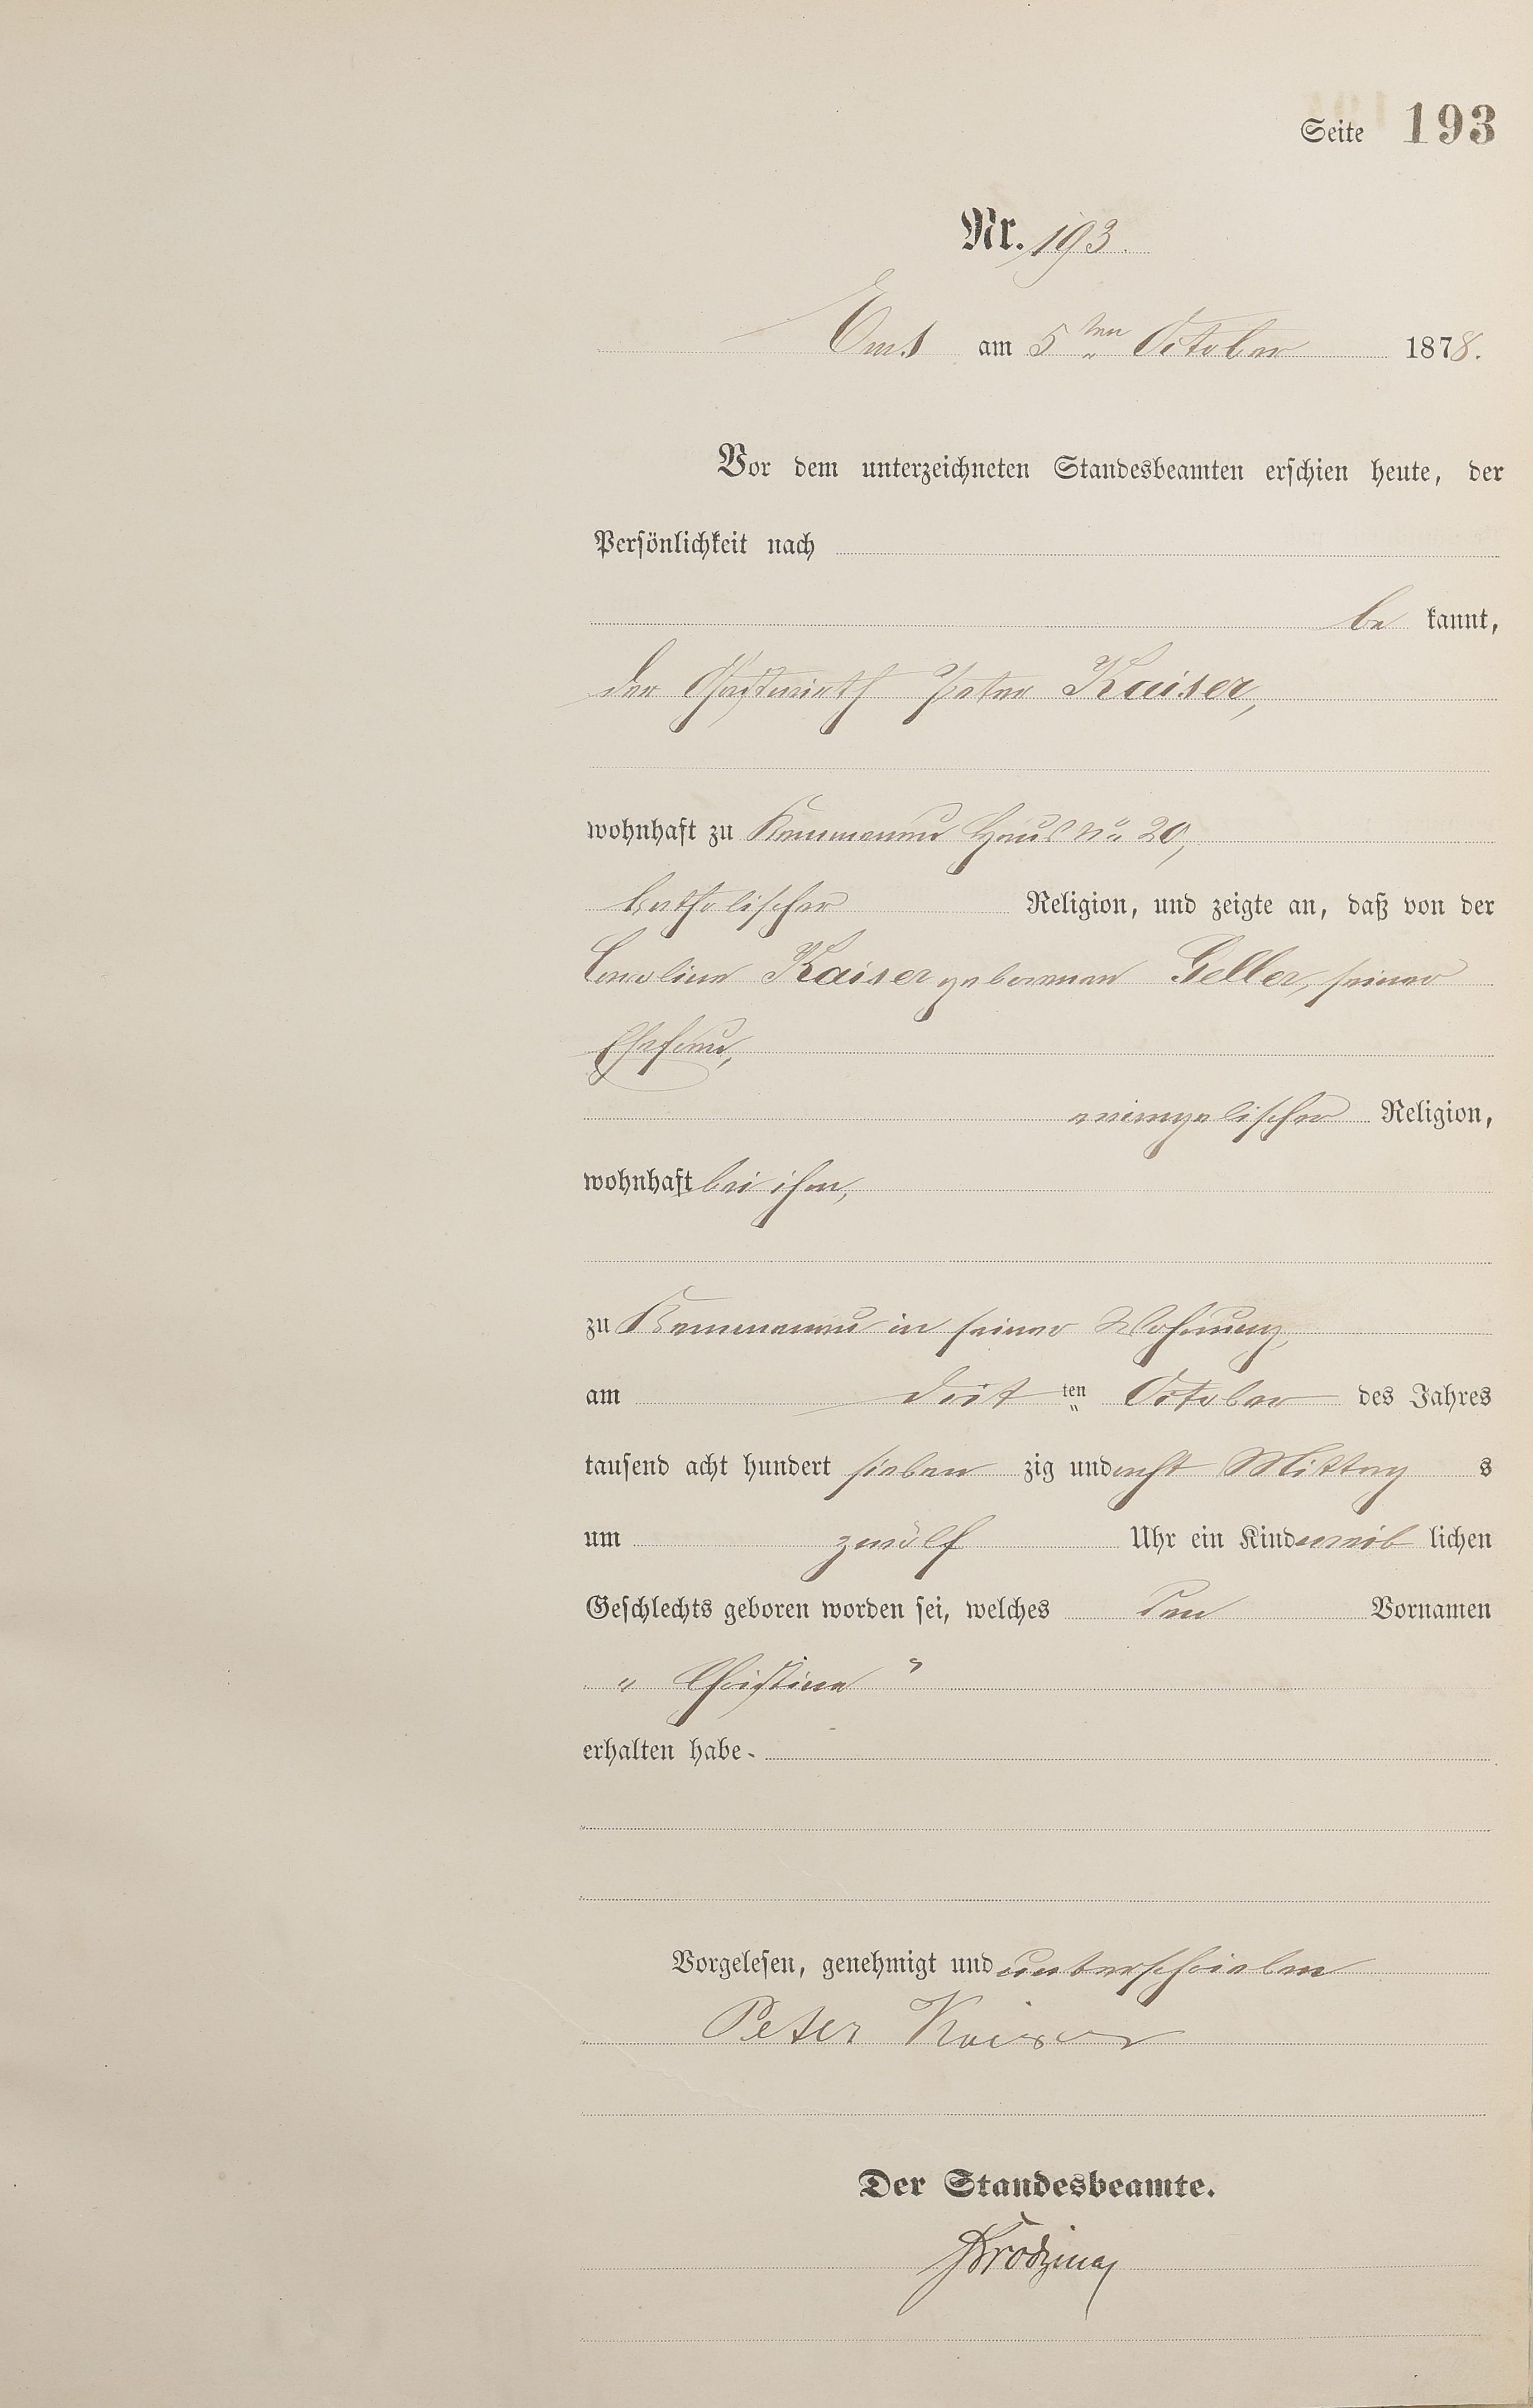 Seite 193
Nr. 193.
Ems am 5ten October 1878.
Vor dem unterzeichneten Standesbeamten erschien heute, der
Persönlichkeit nach
be kannt,
der Gastwirth Peter Kaiser,
wohnhaft zu Kemmenau Haus No 20,
katholischer Religion, und zeigte an, daß von der
Caroline Kaiser geborenen Geller, seiner
Ehefrau,
evangelischer Religion,
wohnhaft bei ihm,
zu Kemmenau in seiner Wohnung,
am dritten October des Jahres
tausend acht hundert sieben zig und acht Mittag s
um zwölf Uhr ein Kind weib lichen
Geschlechts geboren worden sei, welches den Vornamen
„ Christine "
erhalten habe.
Vorgelesen, genehmigt und unterschrieben
Peter Kaiser
Der Standesbeamte.